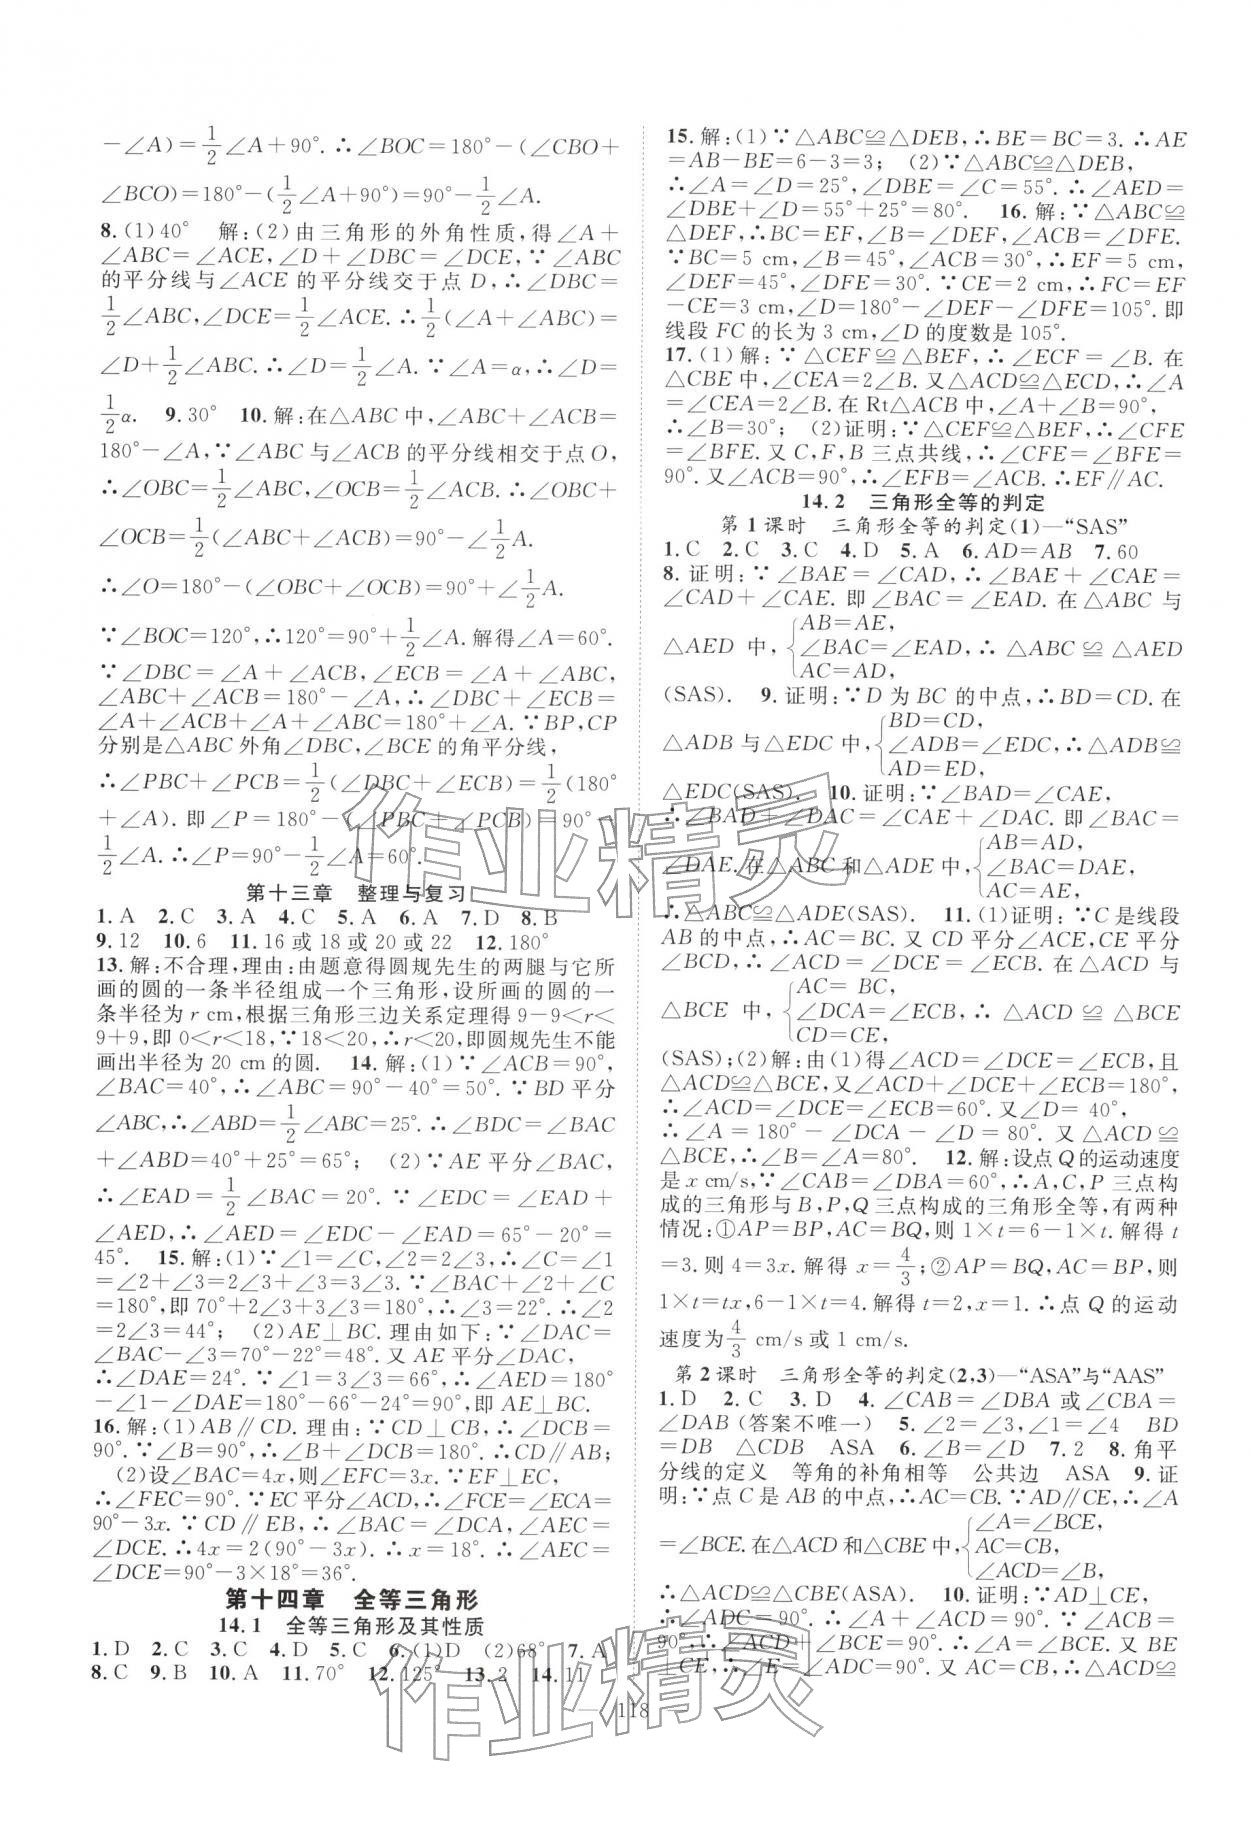 －∠A)＝1/2∠A＋90°. ∴∠BOC＝180°－(∠CBO＋
∠BCO)＝180°－(1/2∠A＋90°)＝90°－1/2∠A.
8. (1)40° 解:(2)由三角形的外角性质,得∠A＋
∠ABC＝∠ACE,∠D＋∠DBC＝∠DCE,∵∠ABC
的平分线与∠ACE的平分线交于点D,∴∠DBC＝
1/2∠ABC,∠DCE＝1/2∠ACE. ∴1/2(∠A＋∠ABC)＝
∠D＋1/2∠ABC. ∴∠D＝1/2∠A. ∵∠A＝α,∴∠D＝
1/2α. 9. 30° 10. 解:在△ABC中,∠ABC＋∠ACB＝
180°－∠A,∵∠ABC与∠ACB的平分线相交于点O,
∴∠OBC＝1/2∠ABC,∠OCB＝1/2∠ACB. ∴∠OBC＋
∠OCB＝1/2(∠ABC＋∠ACB)＝90°－1/2∠A.
∴∠O＝180°－(∠OBC＋∠OCB)＝90°＋1/2∠A.
∵∠BOC＝120°,∴120°＝90°＋1/2∠A. 解得∠A＝60°.
∵∠DBC＝∠A＋∠ACB,∠ECB＝∠A＋∠ABC,
∠ABC＋∠ACB＝180°－∠A,∴∠DBC＋∠ECB＝
∠A＋∠ACB＋∠A＋∠ABC＝180°＋∠A. ∵BP,CP
分别是△ABC外角∠DBC,∠BCE的角平分线,
∴∠PBC＋∠PCB＝1/2(∠DBC＋∠ECB)＝1/2(180°
＋∠A). 即∠P＝180°－(∠PBC＋∠PCB)＝90°－
1/2∠A. ∴∠P＝90°－1/2∠A＝60°.
第十三章 整理与复习
1. A 2. C 3. A 4. C 5. A 6. A 7. D 8. B
9. 12 10. 6 11. 16或18或20或22 12. 180°
13. 解:不合理,理由:由题意得圆规先生的两腿与它所
画的圆的一条半径组成一个三角形,设所画的圆的一
条半径为r cm,根据三角形三边关系定理得9－9＜r＜
9＋9,即0＜r＜18,∵18＜20,∴r＜20,即圆规先生不能
画出半径为20 cm的圆. 14. 解:(1)∵∠ACB＝90°,
∠BAC＝40°,∴∠ABC＝90°－40°＝50°. ∵BD平分
∠ABC,∴∠ABD＝1/2∠ABC＝25°. ∴∠BDC＝∠BAC
＋∠ABD＝40°＋25°＝65°; (2)∵AE平分∠BAC,
∴∠EAD＝1/2∠BAC＝20°. ∵∠EDC＝∠EAD＋
∠AED,∴∠AED＝∠EDC－∠EAD＝65°－20°＝
45°. 15. 解:(1)∵∠1＝∠C,∠2＝2∠3,∴∠C＝∠1
＝∠2＋∠3＝2∠3＋∠3＝3∠3. ∵∠BAC＋∠2＋∠C
＝180°,即70°＋2∠3＋3∠3＝180°,∴∠3＝22°. ∴∠2
＝2∠3＝44°; (2)AE⊥BC. 理由如下:∵∠DAC＝
∠BAC－∠3＝70°－22°＝48°. 又AE平分∠DAC,
∴∠DAE＝24°. ∵∠1＝3∠3＝66°,∴∠AED＝180°
－∠1－∠DAE＝180°－66°－24°＝90°,即AE⊥BC.
16. 解:(1)AB∥CD. 理由:∵CD⊥CB,∴∠DCB＝
90°. ∵∠B＝90°,∴∠B＋∠DCB＝180°. ∴CD∥AB;
(2)设∠BAC＝4x,则∠EFC＝3x. ∵EF⊥EC,
∴∠FEC＝90°. ∵EC平分∠ACD,∴∠FCE＝∠ECA＝
90°－3x. ∵CD∥EB,∴∠BAC＝∠DCA,∠AEC＝
∠DCE. ∴4x＝2(90°－3x). ∴x＝18°. ∴∠AEC＝
∠DCE＝90°－3×18°＝36°.
第十四章 全等三角形
14.1 全等三角形及其性质
1. D 2. C 3. C 4. D 5. C 6. (1)D (2)68° 7. A
8. C 9. B 10. A 11. 70° 12. 125° 13. 2 14. 11
15. 解:(1)∵△ABC≌△DEB,∴BE＝BC＝3. ∴AE
＝AB－BE＝6－3＝3; (2)∵△ABC≌△DEB,
∴∠A＝∠D＝25°,∠DBE＝∠C＝55°. ∴∠AED＝
∠DBE＋∠D＝55°＋25°＝80°. 16. 解:∵△ABC≌
△DEF,∴BC＝EF,∠B＝∠DEF,∠ACB＝∠DFE.
∵BC＝5 cm,∠B＝45°,∠ACB＝30°,∴EF＝5 cm,
∠DEF＝45°,∠DFE＝30°. ∵CE＝2 cm,∴FC＝EF
－CE＝3 cm,∠D＝180°－∠DEF－∠DFE＝105°. 即
线段FC的长为3 cm,∠D的度数是105°.
17. (1)解:∵△CEF≌△BEF,∴∠ECF＝∠B. 在
△CBE中,∠CEA＝2∠B. 又△ACD≌△ECD,∴∠A
＝∠CEA＝2∠B. 在Rt△ACB中,∠A＋∠B＝90°,
∴∠B＝30°; (2)证明:∵△CEF≌△BEF,∴∠CFE
＝∠BFE. 又C,F,B三点共线,∴∠CFE＝∠BFE＝
90°. 又∠ACB＝90°,∴∠EFB＝∠ACB. ∴EF∥AC.
14.2 三角形全等的判定
第1课时 三角形全等的判定(1)—“SAS”
1. C 2. C 3. C 4. D 5. A 6. AD＝AB 7. 60
8. 证明:∵∠BAE＝∠CAD,∴∠BAE＋∠CAE＝
∠CAD＋∠CAE. 即∠BAC＝∠EAD. 在△ABC与
△AED中,{AB＝AE, ∠BAC＝∠EAD, AC＝AD, ∴△ABC≌△AED
(SAS). 9. 证明:∵D为BC的中点,∴BD＝CD. 在
△ADB与△EDC中,{BD＝CD, ∠ADB＝∠EDC, AD＝ED, ∴△ADB≌
△EDC(SAS). 10. 证明:∵∠BAD＝∠CAE,
∴∠BAD＋∠DAC＝∠CAE＋∠DAC. 即∠BAC＝
∠DAE. 在△ABC和△ADE中,{AB＝AD, ∠BAC＝DAE, AC＝AE,
∴△ABC≌△ADE(SAS). 11. (1)证明:∵C是线段
AB的中点,∴AC＝BC. 又CD平分∠ACE,CE平分
∠BCD,∴∠ACD＝∠DCE＝∠ECB. 在△ACD与
△BCE中,{AC＝BC, ∠DCA＝∠ECB, CD＝CE, ∴△ACD≌△BCE
(SAS); (2)解:由(1)得∠ACD＝∠DCE＝∠ECB,且
△ACD≌△BCE,又∠ACD＋∠DCE＋∠ECB＝180°,
∴∠ACD＝∠DCE＝∠ECB＝60°. 又∠D＝40°,
∴∠A＝180°－∠DCA－∠D＝80°. 又△ACD≌
△BCE,∴∠B＝∠A＝80°. 12. 解:设点Q的运动速度
是x cm/s,∵∠CAB＝∠DBA＝60°,∴A,C,P三点构
成的三角形与B,P,Q三点构成的三角形全等,有两种
情况:①AP＝BP,AC＝BQ,则1×t＝6－1×t. 解得t
＝3. 则4＝3x. 解得x＝4/3; ②AP＝BQ,AC＝BP,则
1×t＝tx,6－1×t＝4. 解得t＝2,x＝1. ∴点Q的运动
速度为4/3 cm/s或1 cm/s.
第2课时 三角形全等的判定(2,3)—“ASA”与“AAS”
1. D 2. C 3. D 4. ∠CAB＝∠DBA或∠CBA＝
∠DAB(答案不唯一) 5. ∠2＝∠3,∠1＝∠4 BD
＝DB △CDB ASA 6. ∠B＝∠D 7. 2 8. 角平
分线的定义 等角的补角相等 公共边 ASA 9. 证
明:∵点C是AB的中点,∴AC＝CB. ∵AD∥CE,∴∠A
＝∠BCE. 在△ACD和△CBE中,{∠A＝∠BCE, AC＝CB, ∠ACD＝∠B,
∴△ACD≌△CBE(ASA). 10. 证明:∵AD⊥CE,
∴∠ADC＝90°. ∴∠A＋∠ACD＝90°. ∵∠ACB＝
90°,∴∠ACD＋∠BCE＝90°. ∴∠A＝∠BCE. 又BE
⊥CE,∴∠E＝∠ADC＝90°. 又AC＝CB,∴△ACD≌
— 118 —
作业精灵
作业精灵